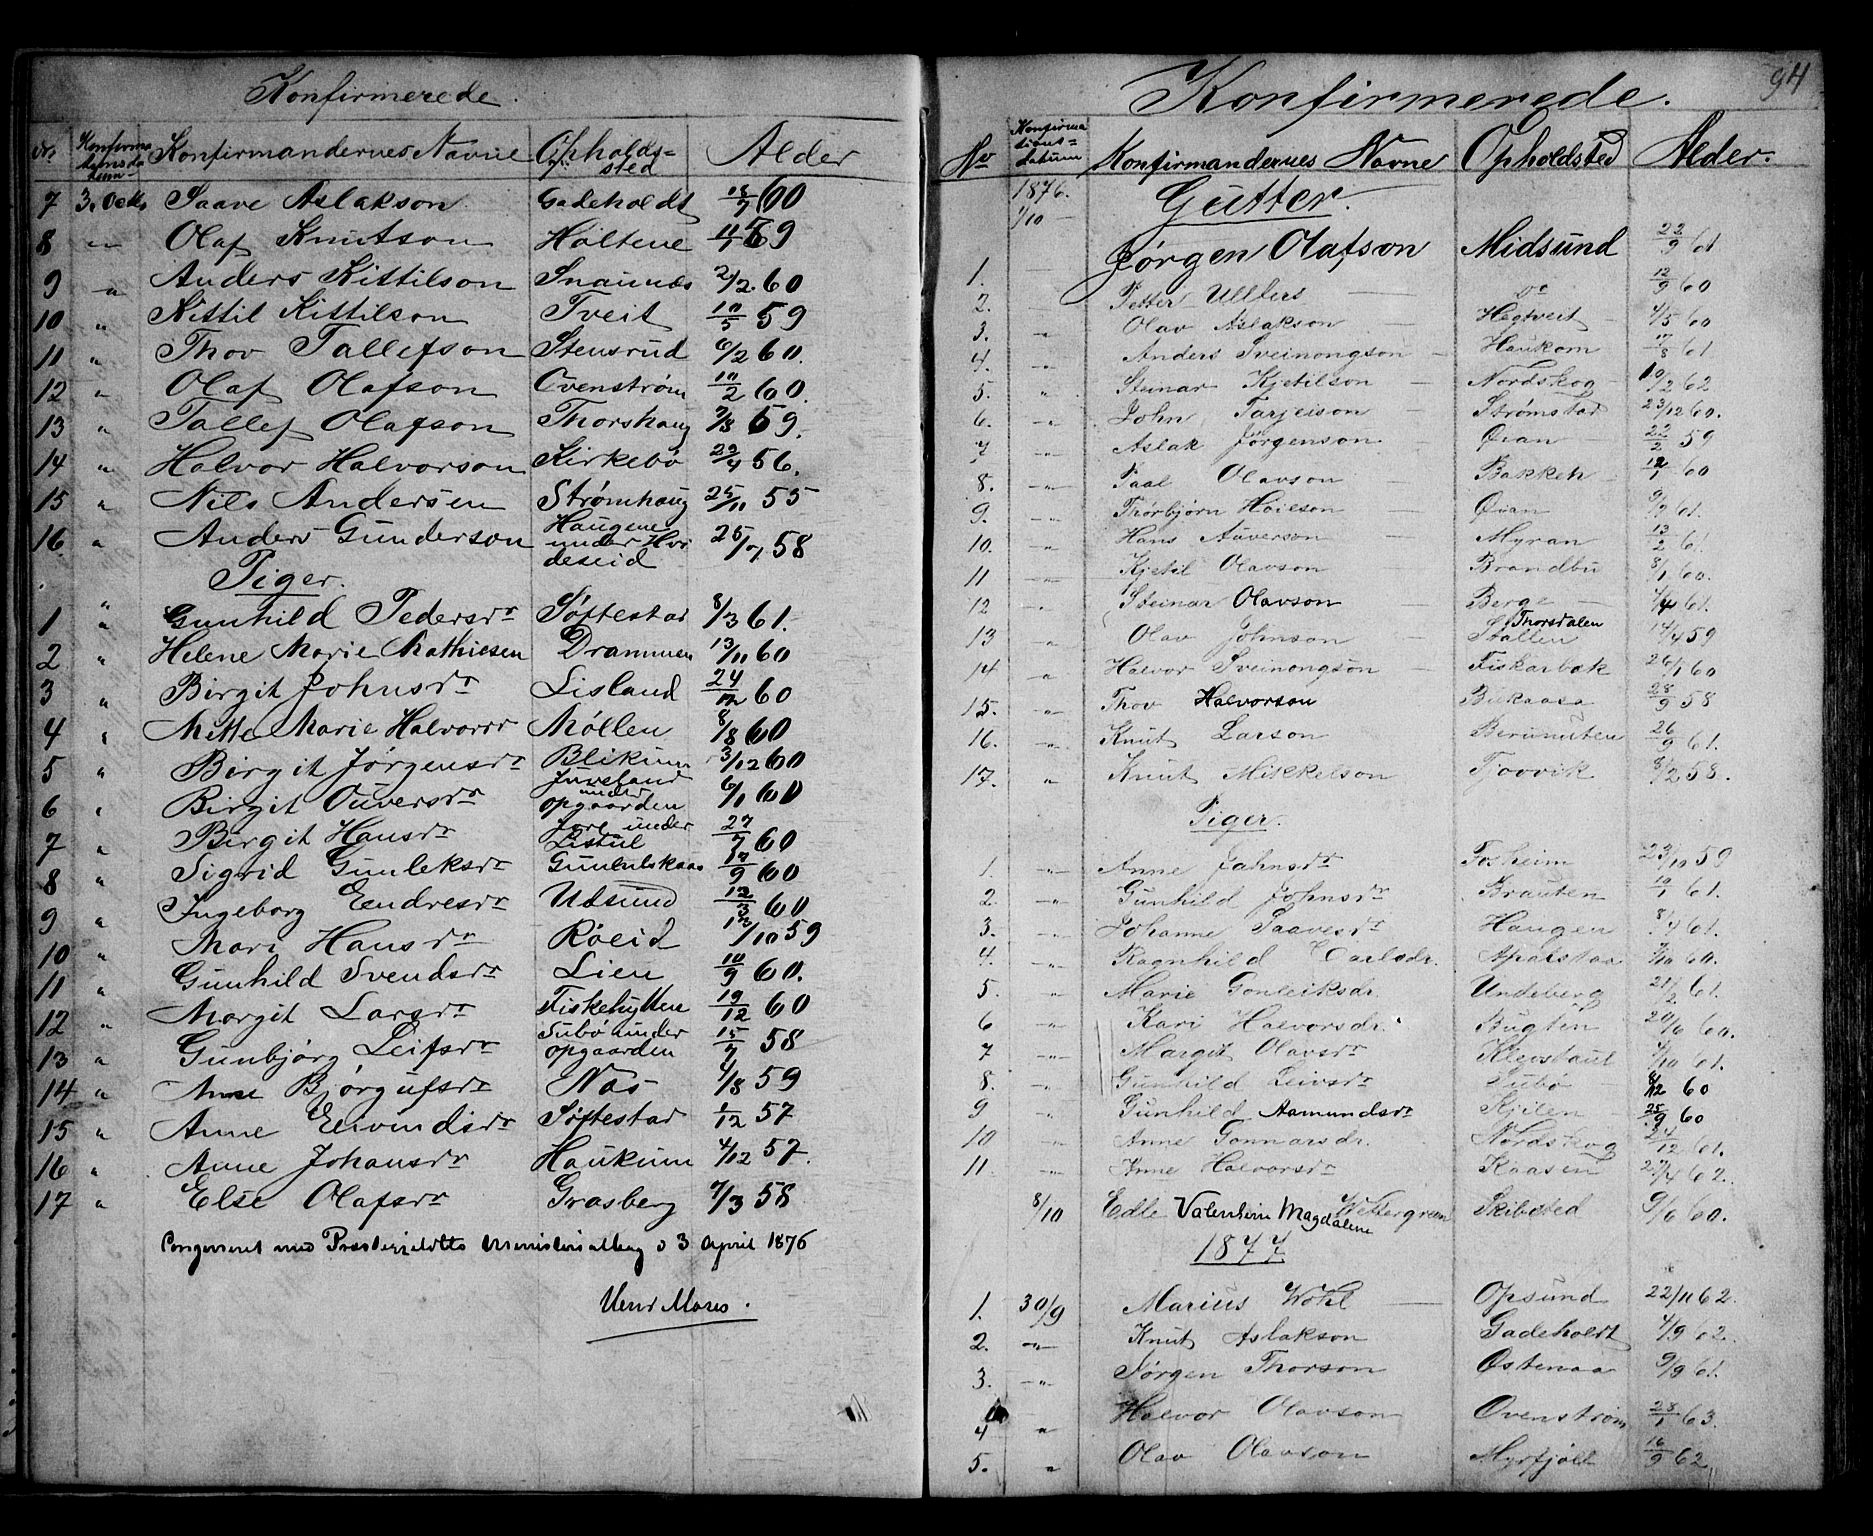 Konfirmerede.
No Konfirmationsdatum Konfirmandernes Navne Opholdssted Alder
7 3. Octb. Saave Aslakson Gadeholdt 18/7 60
8 " Olaf Knutson Holtene 11/1 59
9 " Anders Kittilson Snaunæs 2/2 60
10 " Kittil Kittilson Tveit 10/5 59
11 " Thov Tallefson Stensrud 6/2 60.
12 " Olaf Olafson Ovenstrøm 10/2 60.
13 " Tallef Olafson Thorshaug 7/8 59.
14 " Halvor Halvorson Kirkebö 22/4 56.
15 " Nils Andersen Strømhaug 25/11 55
16 " Anders Gunderson Haugene under Hvideseid 25/7 58
Piger.
1 " Gunhild Pedersdr Søftestad 8/3 61.
2 " Helene Marie Mathiesen Drammen 13/11 60
3 " Birgit Johnsdr Lisland 24/12 60
4 " Mette Marie Halvorsdr Møllen 8/8 60
5 " Birgit Jørgensdr Blikum 3/12 60
6 " Birgit Ouversdr Juveland under opgaarden 6/1 60
7 " Birgit Hansdr Jore under Listul 27/7 60
8 " Sigrid Gunleksdr Gunhulskaas 17/9 60
9 " Ingeborg Endresdr Udsund 12/3 60
10 " Mari Hansdr Röeid 12/10 59
11 " Gunhild Svendsdr Lien 10/9 60.
12 " Margit Larsdr Fiskehytten 19/12 60
13 " Gunbjörg Leifsdr Subö under opgaarden 15/7 58
14 " Anne Bjørgufsdr Næs 4/8 59
15 " Anne Eivindsdr Søftestad 1/12 57
16 " Anne Johansdr Haukum 4/12 57.
17 " Else Olafsdr Grasberg 7/3 58
med Præstegjeldets Ministerialbog d 3 April 1876
94
Konfirmerede.
No Konfirmationsdatum Konfirmandernes Navne Opholdsted Alder.
1876. 1/10 Gutter.
1. Jørgen Olafson Midsund 22/9 61
2. Petter Ullers do 12/9 60
3. " Olav Aslakson Hegtveit 4/5 60
4. " Anders Sveinongson Haukom 17/8 61
5. " Steinar Kjetilson Nordskog 10/2 62
6. " John Tarjeison Strømstad 23/12 60.
7 " Aslak Jørgenson Øian 22/2 59
8. " Paal Olavson Bakken 12/1 60
9. " Thorbjörn Hoieson Øian 9/7 61.
10. " Hans Auverson Myran 13/2 61.
11 " Kjetil Olavson Brandbu 8/1 60.
12 " Steinar Olavson Berge 4/4 61.
13 " Olav Johnson Thorsdalen Stallen 14/4 59
14 " Halvor Sveinongson Fiskarbæk 26/1 60
15. " Thov Halvorson Bukaasa 28/9 58
16. " Knut Larson Berunuten 26/9 61.
17. " Knut Mikkelson Tjovvik 8/2 58.
Piger.
1. " Anne Jahnsdr Forheim 23/10 59
2. " Gunhild Johnsdr Brauten 10/1 61.
3. " Johanne Saavesdr Haugen 8/4 61.
4. " Ragnhild Carlsdr. Apalstaa 7/10 60.
5. " Marie Gonleiksdr. Undeberg 21/2 61.
6 " Kari Halvorsdr. Bugten 20/6 60.
7 " Margit Olavsdr Klevstaul 4/10 61.
8. " Gunhild Leivsdr Subö 8/12 60
9 " Gunhild Aamundsdr Kjilen 25/9 60
10 " Anne Gonnarsdr. Nordskog 24/12 61.
11. " Anne Halvorsdr Kaasen 27/4 62.
8/10 Edle Valentine Magdalene Wettergreen Skibsted 9/6 60.
1877
1. 30/9 Marius Wohl Opsund 22/11 62.
2. " Knut Aslakson Gadeholdt 4/9 62.
3. " Jørgen Thorson Østenaa 9/9 61.
4 " Halvor Olavson Ovenstrøm 28/1 63.
5. " Olav Olavson Myrfjöll 16/9 62